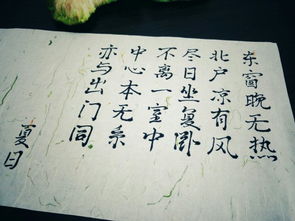 东窗晚无热
北户凉有风
尽日坐复卧
不离一室中
中心本无系
亦与出门同
夏日